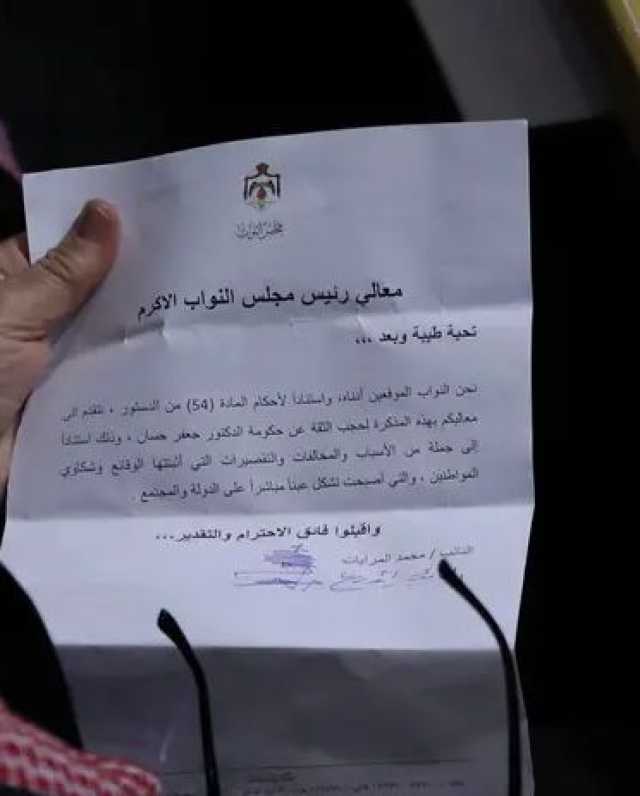 مجلس النواب
معالي رئيس مجلس النواب الاكرم
تحية طيبة وبعد ,,,
نحن النواب الموقعين أدناه، واستناداً لأحكام المادة (54) من الدستور ، نتقدم الى
معاليكم بهذه المذكرة لحجب الثقة عن حكومة الدكتور جعفر حسان ، وذلك استناداً
إلى جملة من الأسباب والمخالفات والتقصيرات التي أثبتتها الوقائع وشكاوي
المواطنين ، والتي أصبحت تشكل عبئاً مباشراً على الدولة والمجتمع .
واقبلوا فائق الاحترام والتقدير...
النائب / محمد المرايات